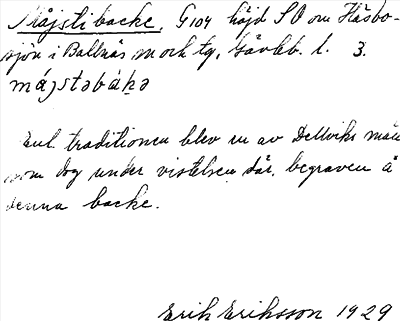 Måjstibacke, G104 höjd SO om Häsbo-
sjön i Bollnäs sn och tg, Gävleb. l. 3.
májstəbák̠ə
Enl. traditionen blev en av Dellviks män
som dog under vistelsen där, begraven å
denna backe.
Erik Eriksson 1929